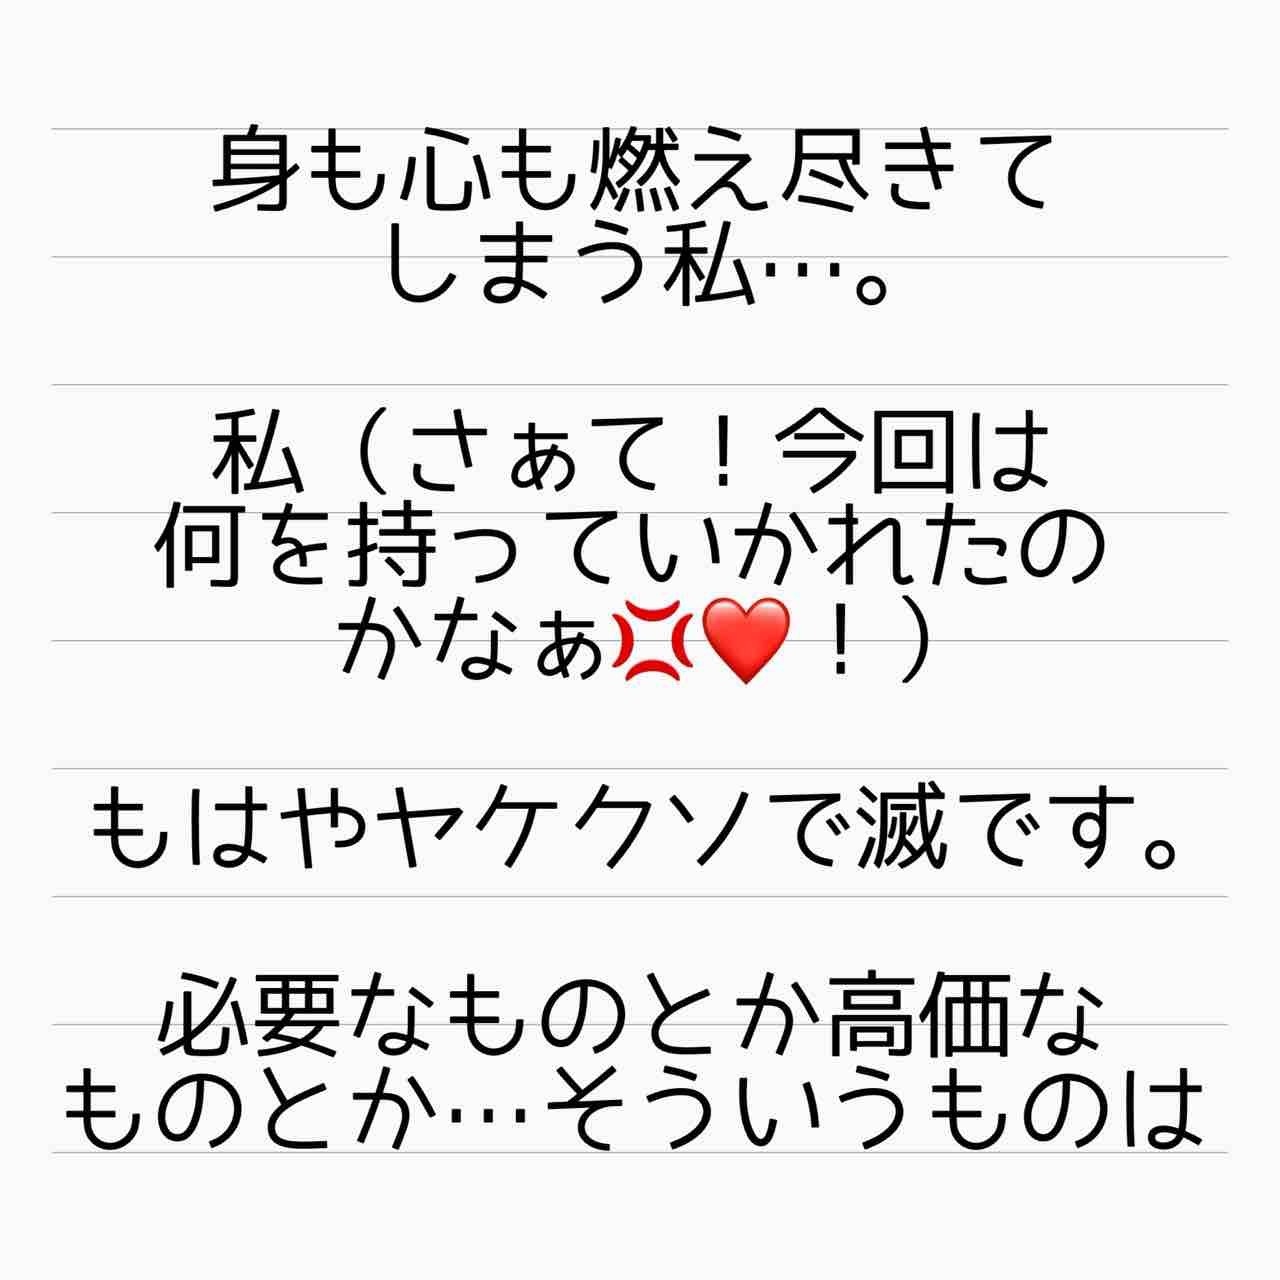 身も心も燃え尽きて
しまう私…。
私（さぁて！今回は
何を持っていかれたの
かなぁ💢❤️！）
もはやヤケクソで滅です。
必要なものとか高価な
ものとか…そういうものは